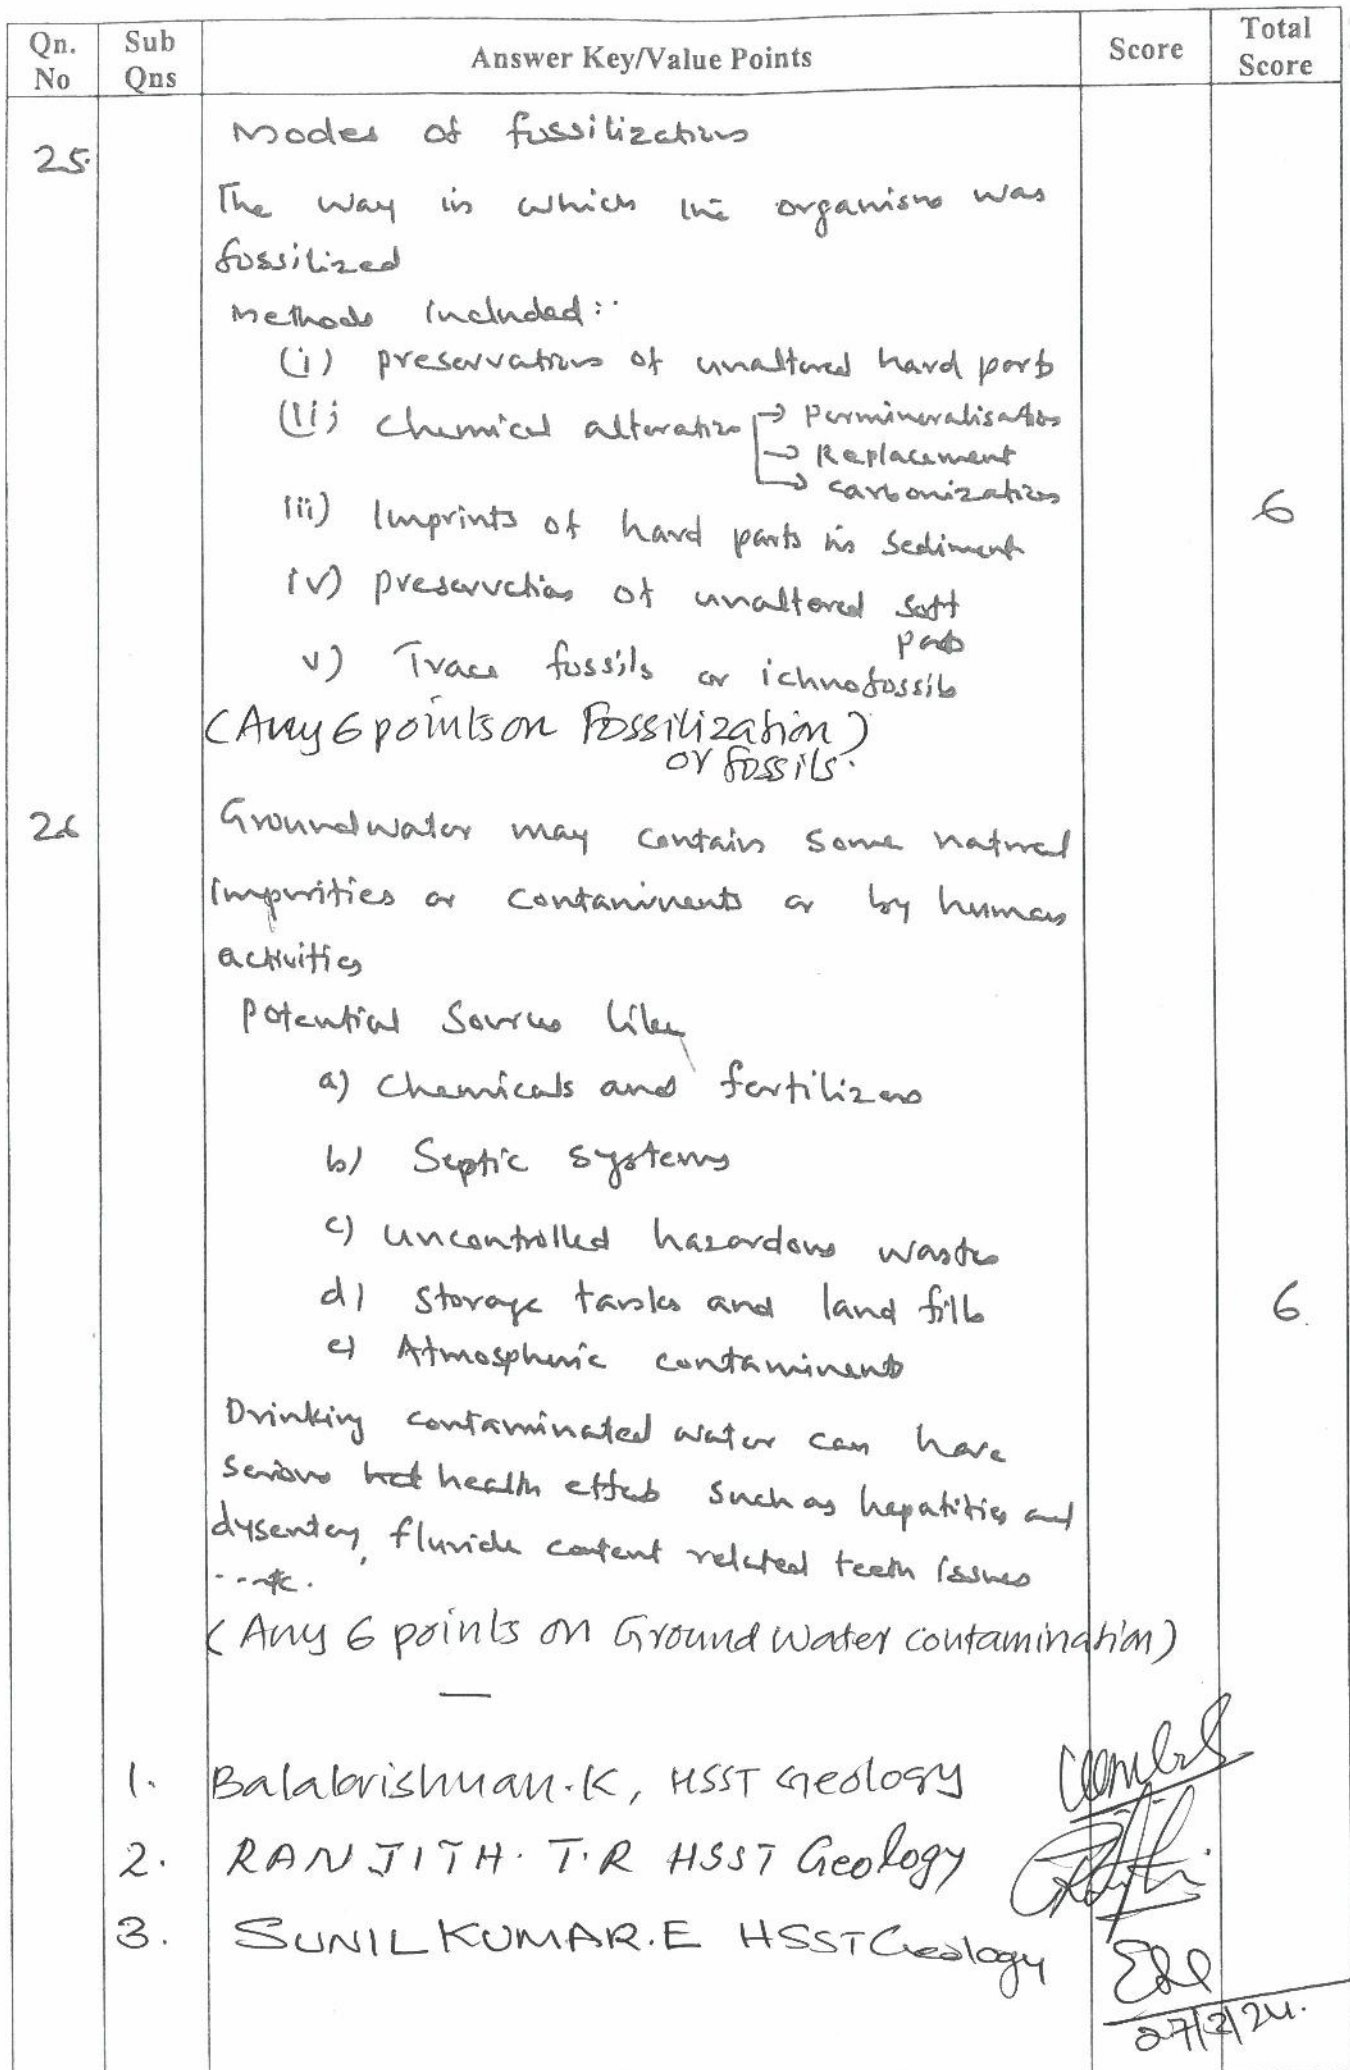 Qn. No Sub Qns Answer Key/Value Points Score Total Score
25. Modes of fossilization
The way in which the organism was
fossilized
Methods included:
(i) preservation of unaltered hard parts
(ii) chemical alteration → Permineralisation
→ Replacement
→ carbonization
iii) Imprints of hard parts in sediment
6
iv) preservation of unaltered soft
parts
v) Trace fossils or ichnofossils
(Any 6 points on Fossilization)
or fossils.
26 Groundwater may contain some natural
impurities or contaminents or by human
activities
Potential Sources like
a) Chemicals and fertilizers
b) Septic systems
c) Uncontrolled hazardous wastes
d) Storage tanks and land fills
6.
e) Atmospheric contaminents
Drinking contaminated water can have
serious health effects such as hepatities and
dysentery, fluride content related teeth issues
...etc.
(Any 6 points on Ground water contamination)
1. Balakrishnan.K, HSST Geology
2. RANJITH. T.R HSST Geology
3. SUNILKUMAR.E HSST Geology
27/2/24.